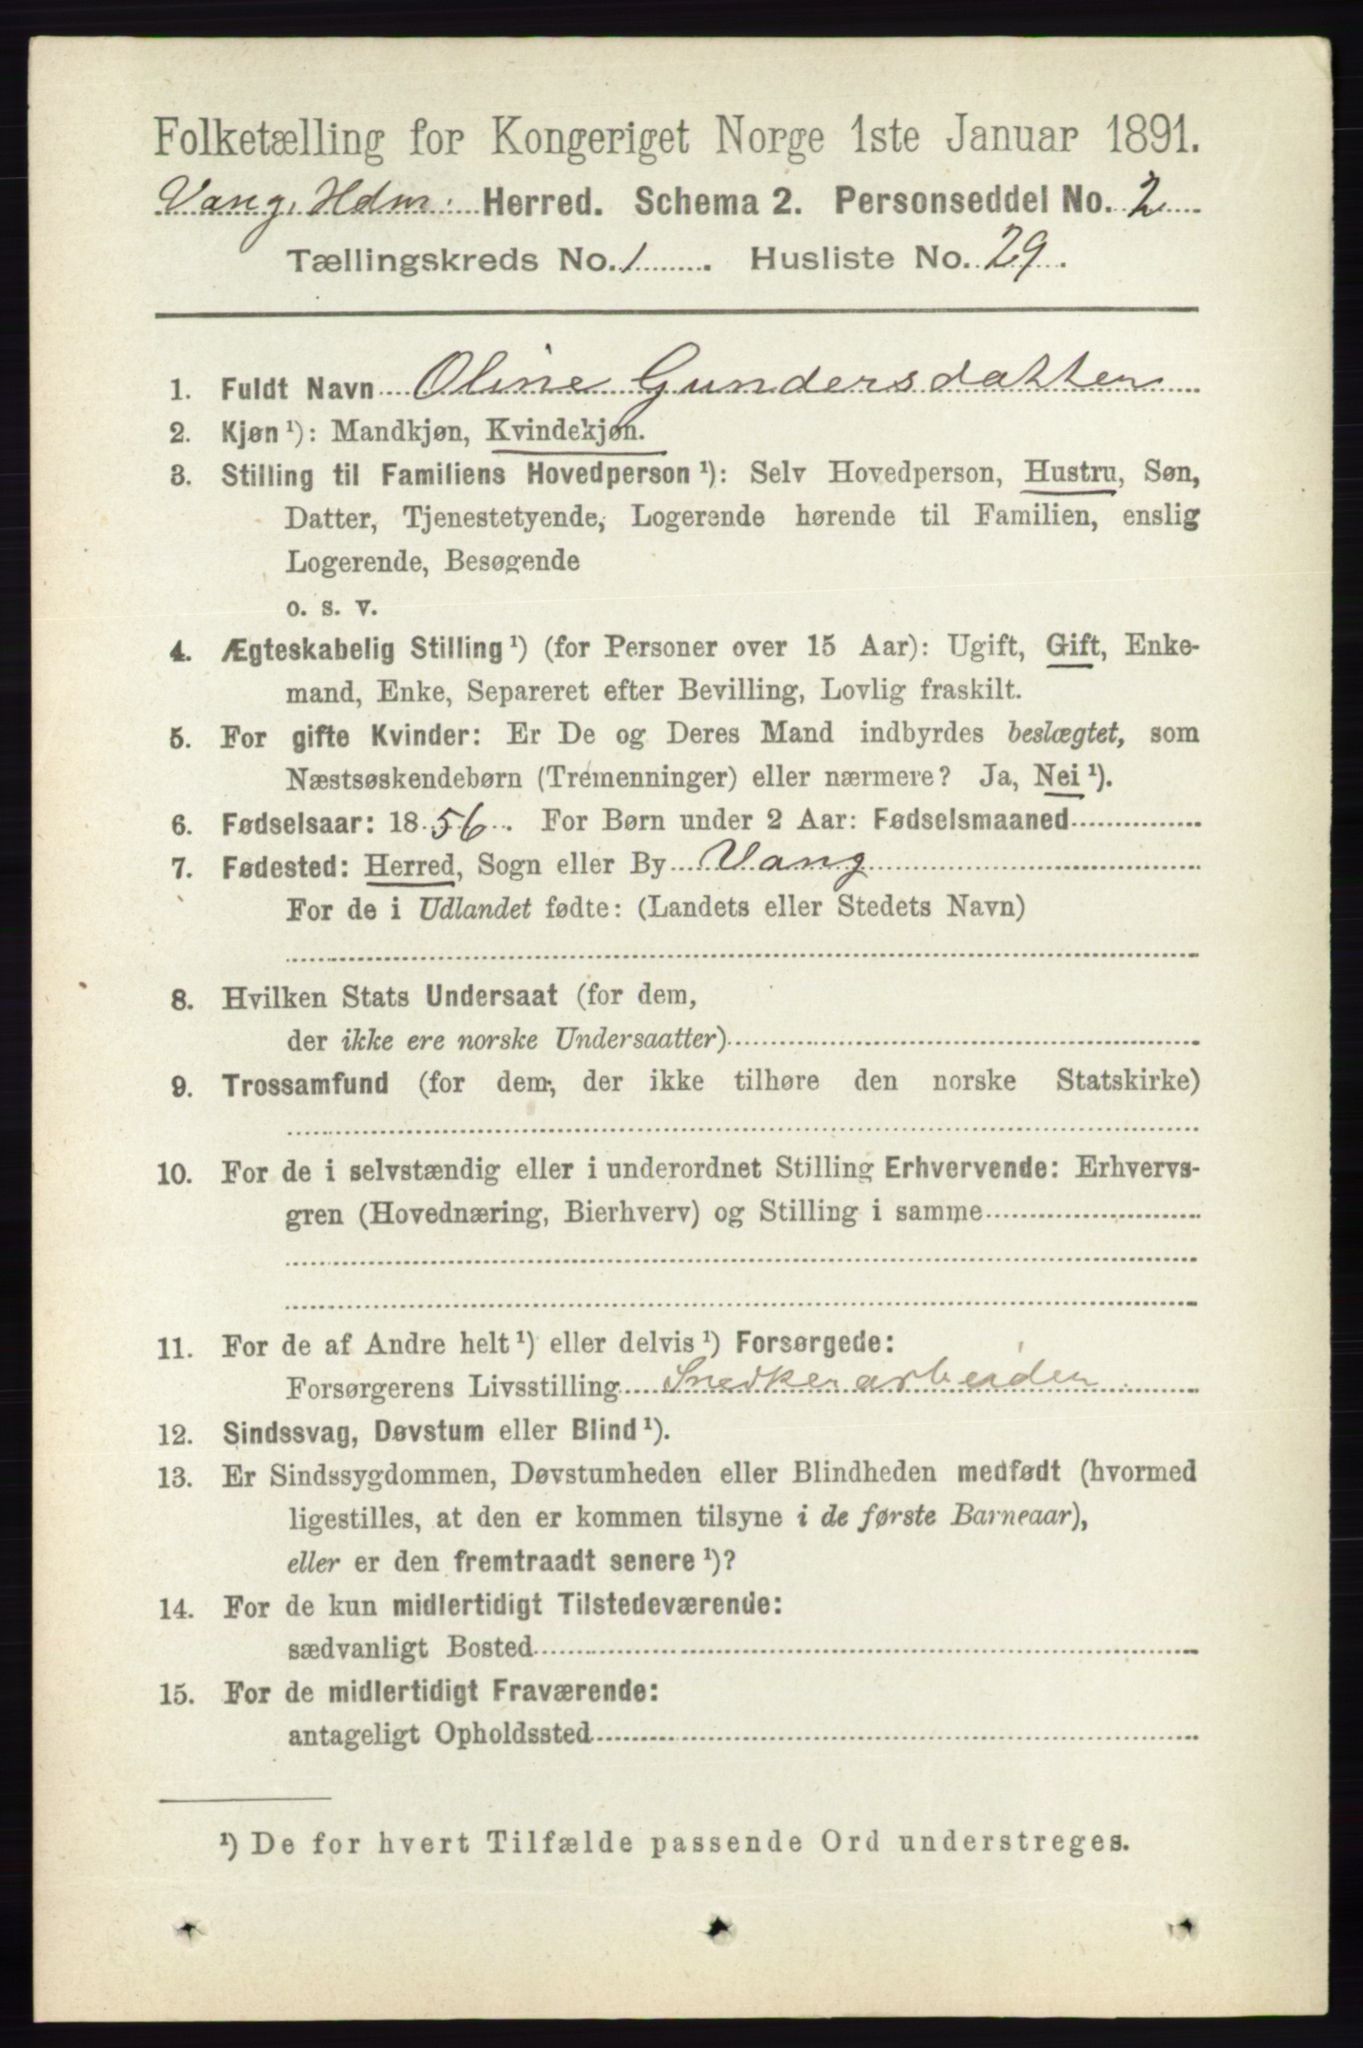 Folketælling for Kongeriget Norge 1ste Januar 1891.
Vang, Hdm. Herred. Schema 2. Personseddel No. 2
Tællingskreds No. 1 Husliste No. 29.
1. Fuldt Navn Oline Gundersdatter
2. Kjøn ¹): Mandkjøn, Kvindekjøn.
3. Stilling til Familiens Hovedperson ¹): Selv Hovedperson, Hustru, Søn,
Datter, Tjenestetyende, Logerende hørende til Familien, enslig
Logerende, Besøgende
o. s. v.
4. Ægteskabelig Stilling ¹) (for Personer over 15 Aar): Ugift, Gift, Enke-
mand, Enke, Separeret efter Bevilling, Lovlig fraskilt.
5. For gifte Kvinder: Er De og Deres Mand indbyrdes beslægtet, som
Næstsøskendebørn (Tremenninger) eller nærmere? Ja, Nei ¹).
6. Fødselsaar: 1856. For Børn under 2 Aar: Fødselsmaaned
7. Fødested: Herred, Sogn eller By Vang
For de i Udlandet fødte: (Landets eller Stedets Navn)
8. Hvilken Stats Undersaat (for dem,
der ikke ere norske Undersaatter)
9. Trossamfund (for dem, der ikke tilhøre den norske Statskirke)
10. For de i selvstændig eller i underordnet Stilling Erhvervende: Erhvervs-
gren (Hovednæring, Bierhverv) og Stilling i samme
11. For de af Andre helt ¹) eller delvis ¹) Forsørgede:
Forsørgerens Livsstilling Snedkerarbeider
12. Sindssvag, Døvstum eller Blind ¹).
13. Er Sindssygdommen, Døvstumheden eller Blindheden medfødt (hvormed
ligestilles, at den er kommen tilsyne i de første Barneaar),
eller er den fremtraadt senere ¹)?
14. For de kun midlertidigt Tilstedeværende:
sædvanligt Bosted
15. For de midlertidigt Fraværende:
antageligt Opholdssted
¹) De for hvert Tilfælde passende Ord understreges.